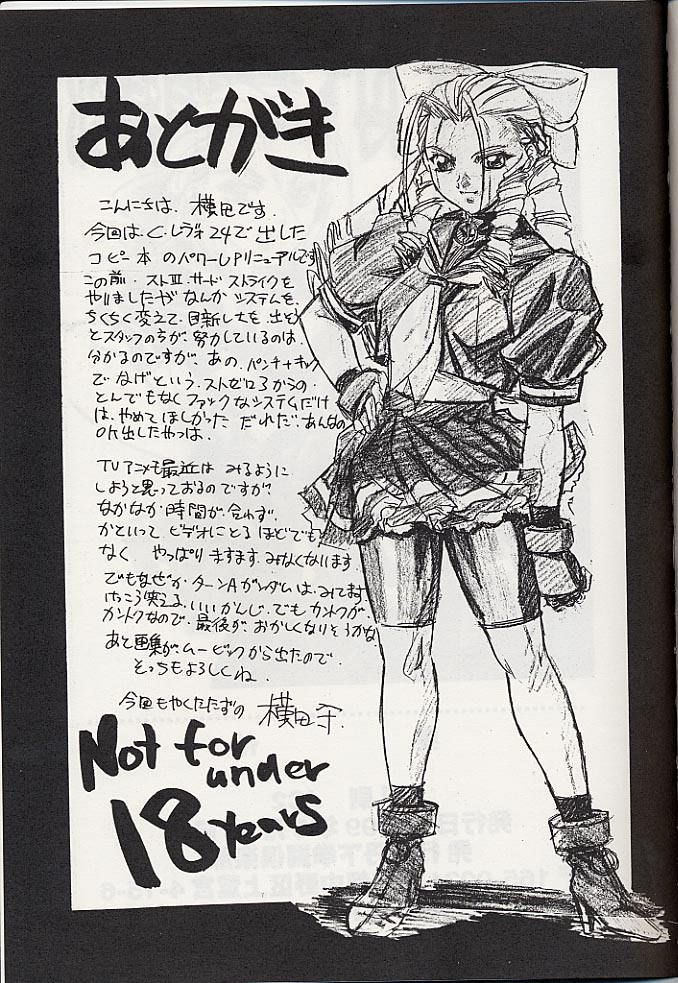 あとがき
こんにちは、横田です。
今回は、C・レヴォ24で出した
コピー本のパワーUPリニューアルです
この前・ストⅢ.サードストライクを
やりましたがなんかシステムを、
ちくちく変えて、目新しさを、出そう
とスタッフの方が、努力しているのは、
分かるのですが、あの、パンチ+キック
でなげという、ストゼロ3からの、
とんでもなくファックなシステムだけ
は、やめてほしかった だれだ、あんなの
OK出したやつは、
TVアニメも最近は みるように
しようと思っておるのですが、
なかなか時間が、合わず、
かといって、ビデオにとるほどでも
なく、やっぱりますますみなくないます
でもなぜか ターンAガンダムは、みてます
けっこう笑える、いいかんじ、でもカントクが、
カントクなので、最後が、おかしくなりそうかな
あと画集が、ムービックから出たので、
そっちもよろしくね、
今回もやくたたずの 横田守
Not for
under
18 years